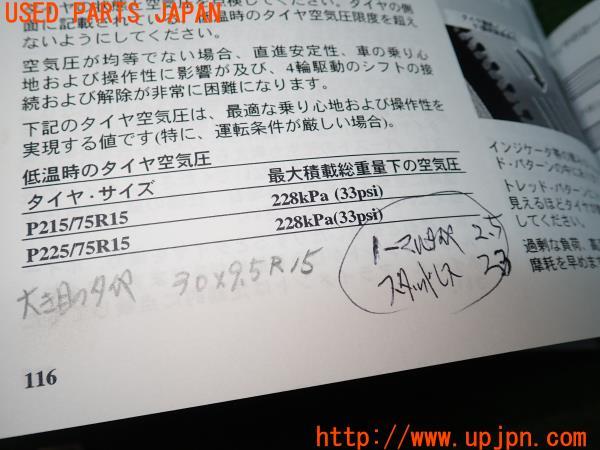 USED PARTS JAPAN
面に記載されている、低温時のタイヤ空気圧限度を超え
ないようにしてください。
空気圧が均等でない場合、直進安定性、車の乗り心
地および操作性に影響が及び、4輪駆動のシフトの接
続および解除が非常に困難になります。
下記のタイヤ空気圧は、最適な乗り心地および操作性を
実現する値です(特に、運転条件が厳しい場合)。
低温時のタイヤ空気圧
タイヤ・サイズ 最大積載総重量下の空気圧
P215/75R15 228kPa (33psi)
P225/75R15 228kPa (33psi)
大き目のタイヤ 30×9.5R15
ノーマルタイヤ 2.3
スタッドレス 2.3
116
インジケータ帯の
ド・パターンの中に
トレッド・パターン
見えるほどタイヤが
してください。
過剰な負荷、
摩耗を早めま
UPJ
USED PARTS JAPAN
www.upjpn.com